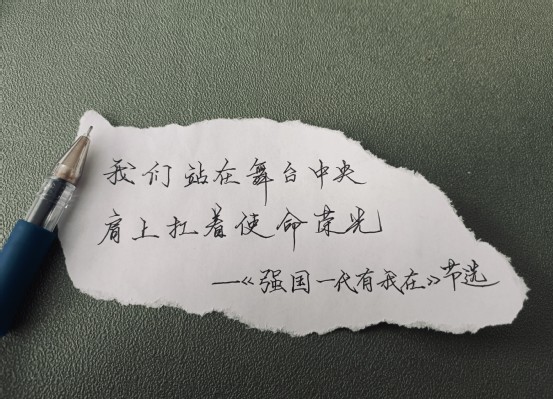 我们站在舞台中央
肩上扛着使命荣光
—《强国一代有我在》节选